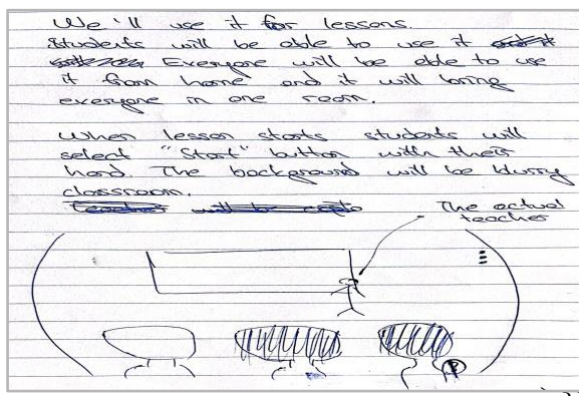 We'll use it for lessons.
Students will be able to use it
Everyone will be able to use
it from home and it will bring
everyone in one room.
When lesson starts students will
select "Start" button with their
hand. The background will be blurry
classroom.
Teacher will be
The actual
teacher